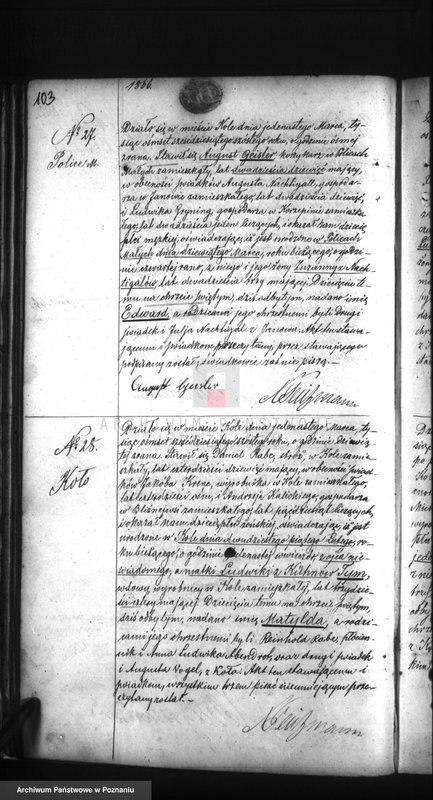 103
1866.
No 27.
Police M.
Działo się w mieście Kole dnia jedenastego Marca, ty-
siąc ośmset sześćdziesiątego szóstego roku, o godzinie ósmej
zrana. Stawił się August Geisler, kołykarz w Policach
Małych zamieszkały, lat dwadzieścia dziewięć mający,
w obecności świadków Augusta Nachtigall, gospoda-
rza w Janowie zamieszkałego, lat dwadzieścia dziewięć,
i Ludwika Zeyning, gospodarza w Korzepinie zamieszka-
łego, lat dwadzieścia jeden liczących, i okazał Nam dziecię
płci męzkiej, oświadczając iż jest urodzone w Policach
Małych dnia dziewiątego Marca, roku bieżącego, o godzi-
nie czwartej rano, z niego i jego żony Zuzanny z Nach-
tigalów, lat dwadzieścia trzy mającej. Dziecięciu te-
mu na chrzcie świętym, dziś odbytym, nadano imię
Edward, a rodzicami jego chrzestnemi byli drugi
świadek i Julja Nachtigall z Janowa. Akt ten stawa-
jącemu i świadkom przeczytany, przez stawającego
podpisany został, świadkowie zaś nie piszą.
August Geisler
No 28.
Koło
Działo się w mieście Kole dnia jedenastego Marca, ty-
siąc ośmset sześćdziesiątego szóstego roku, o godzinie dziewią-
tej zrana. Stawił się Daniel Rabe, stróż, w Kole zamie-
szkały, lat czterdzieści dziewięć mający, w obecności świad-
ków Jakóba Krene, wyrobnika w Kole zamieszkałego,
lat czterdzieści ośm, i Andrzeja Kalickiego, gospodarza
w Bliźnej zamieszkałego, lat pięćdziesiąt liczących,
i okazał Nam dziecię płci żeńskiej, oświadczając, iż jest
urodzone w Kole dnia dwudziestego piątego Lutego, ro-
ku bieżącego, o godzinie jedenastej wieczór, z ojca nie-
wiadomego, a matki Ludwiki z Kühnów Tym,
wdowy, wyrobnicy w Kole zamieszkałej, lat trzydzie-
ści cztery mającej. Dziecięciu temu na chrzcie świętym,
dziś odbytym, nadano imię Matylda, a rodzi-
cami jego chrzestnemi byli Reinhold Rabe, płócien-
nik i Anna Ludwika Abendroth, oraz drugi świadek
i Augusta Vogel, z Koła. Akt ten stawającemu i
świadkom, wszystkim trzem pisać nieumiejącym prze-
czytany został.
Archiwum Państwowe w Poznaniu